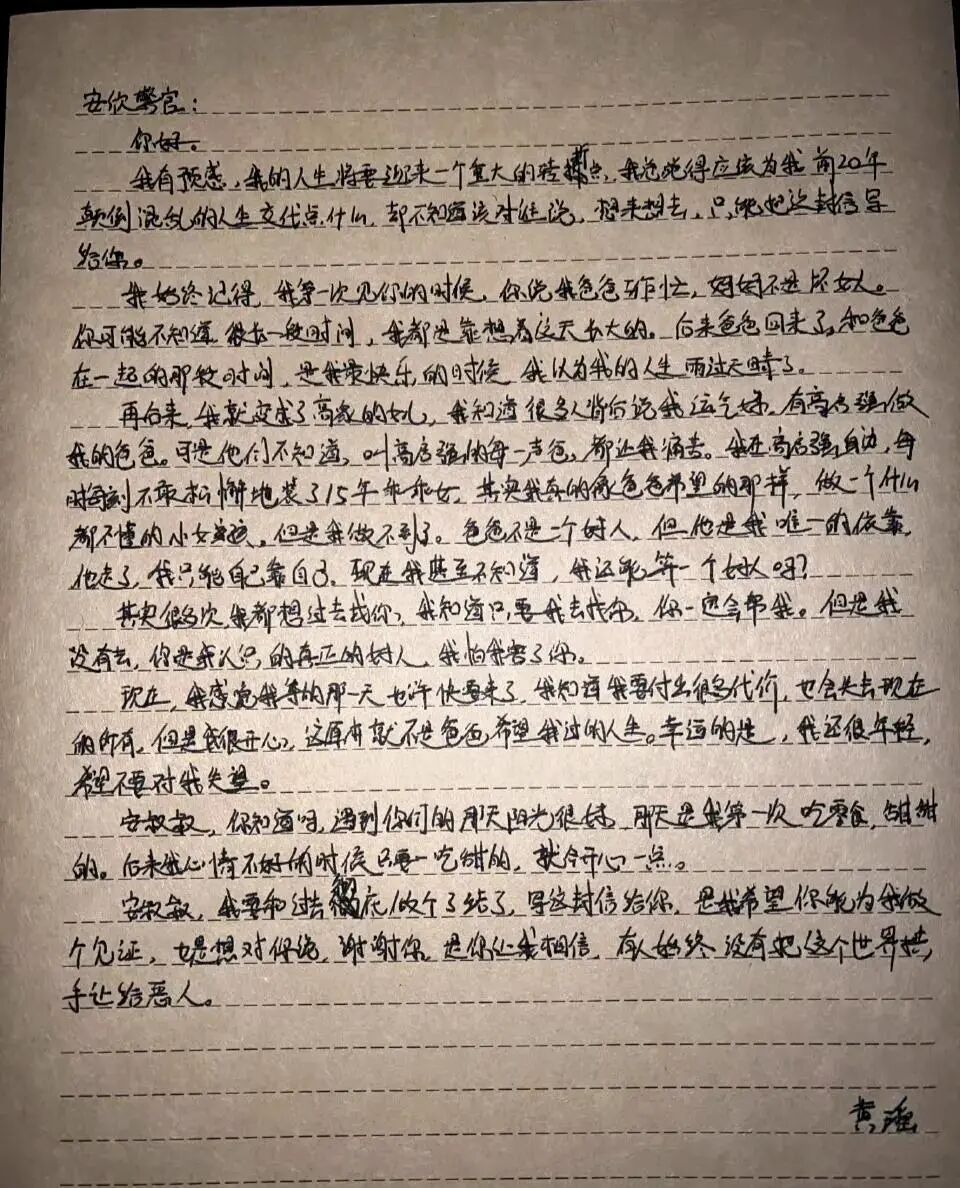 安欣警官：
你好。
我有预感，我的人生将要迎来一个重大的转折点，我总觉得应该为我前20年
颠倒混乱的人生交代点什么，却不知道该对谁说，想来想去，只能把这封信写
给你。
我始终记得，我第一次见你们的时候，你说我爸爸工作忙，妈妈不是坏女人。
你可能不知道，很长一段时间，我都是靠想着这天长大的。后来爸爸回来了，和爸爸
在一起的那段时间，是我最快乐的时候，我认为我的人生雨过天晴了。
再后来，我就变成了高家的女儿，我知道很多人背后说我运气好，有高启强做
我的爸爸。可是他们不知道，叫高启强的每一声爸，都让我痛苦。我在高启强身边，每
时每刻不敢松懈地装了15年乖乖女，其实我真的像爸爸希望的那样，做一个什么
都不懂的小女孩。但是我做不到了。爸爸不是一个好人，但他是我唯一的依靠，
他走了，我只能自己靠自己。现在我甚至不知道，我还能算一个好人吗？
其实很多次，我都想过去找你，我知道只要我去找你，你一定会帮我。但是我
没有去，你是我认识的真正的好人，我怕我害了你。
现在，我感觉我等的那一天也许快要来了，我知道我要付出很多代价，也会失去现在
的所有。但是我很开心，这原本就不是爸爸希望我过的人生。幸运的是，我还很年轻，
希望不要对我失望。
安叔叔，你知道吗，遇到你们的那天阳光很好，那天是我第一次吃零食，甜甜
的。后来我心情不好的时候只要一吃甜的，就会开心一点。
安叔叔，我要和过去彻底做个了结了，写这封信给你，是我希望你能为我做
个见证，也是想对你说，谢谢你，是你让我相信，有人始终没有把这个世界拱
手让给恶人。
黄瑶